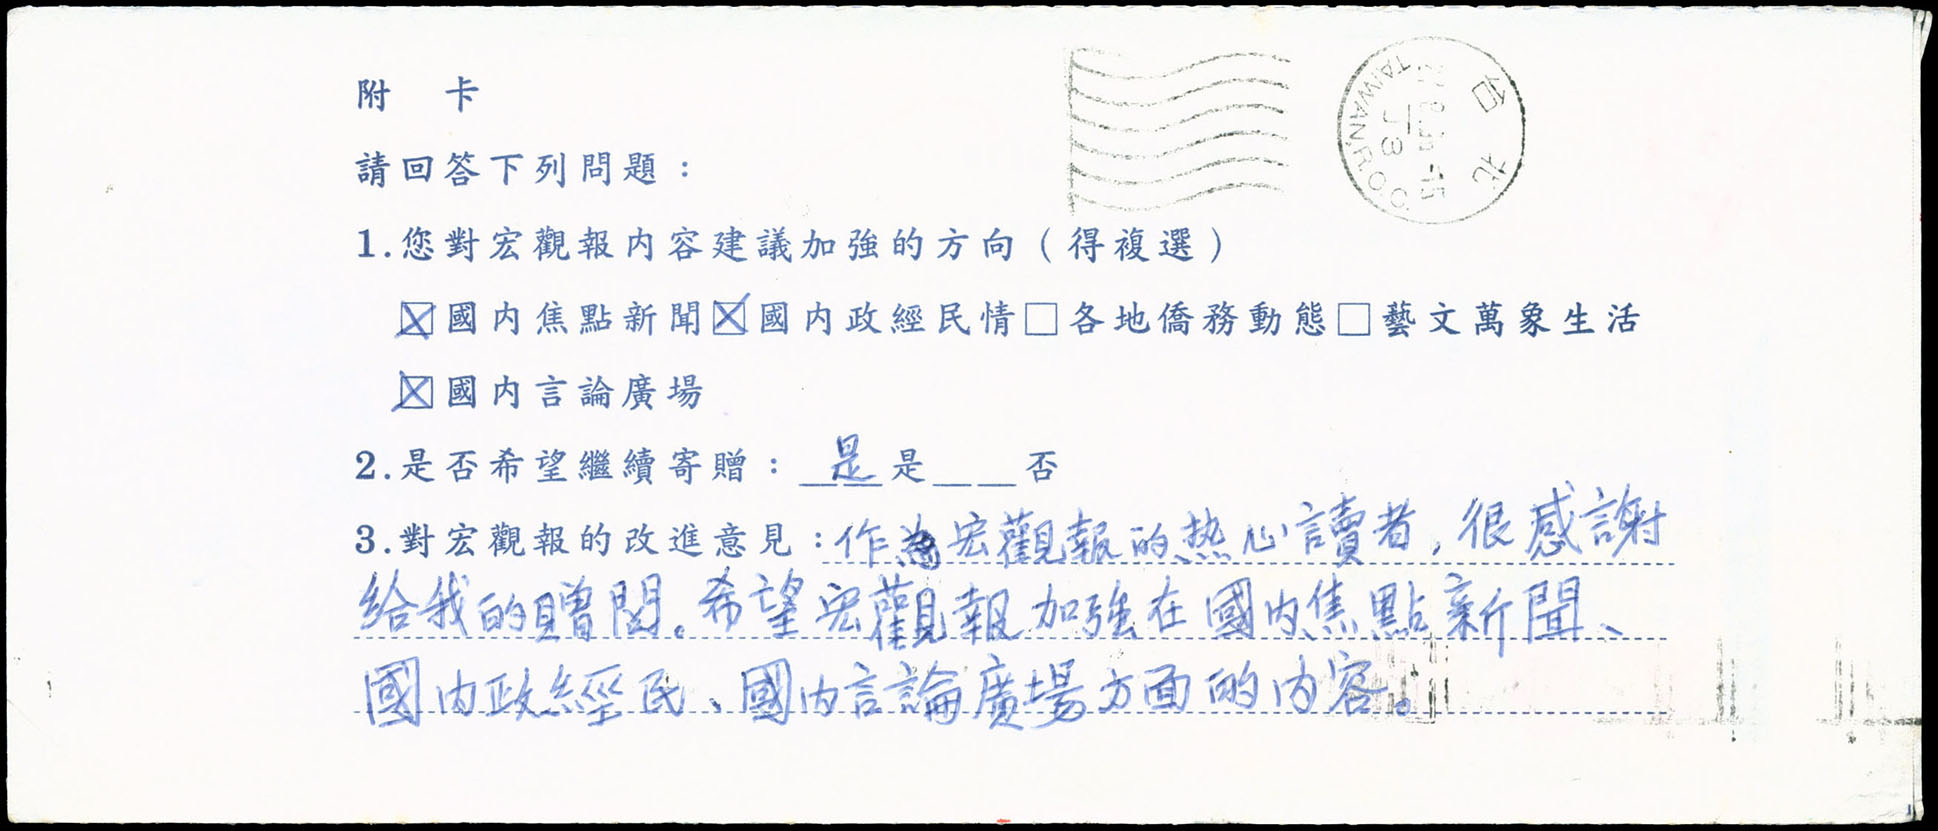 附 卡
請回答下列問題：
1.您對宏觀報內容建議加強的方向（得複選）
☒國內焦點新聞☒國內政經民情□各地僑務動態□藝文萬象生活
☒國內言論廣場
2.是否希望繼續寄贈：是是____否
3.對宏觀報的改進意見：作為宏觀報的热心讀者，很感謝
給我的贈閱。希望宏觀報加強在國內焦點新聞、
國內政經民、國內言論廣場方面的內容。
台北
TAIWAN, R.O.C.